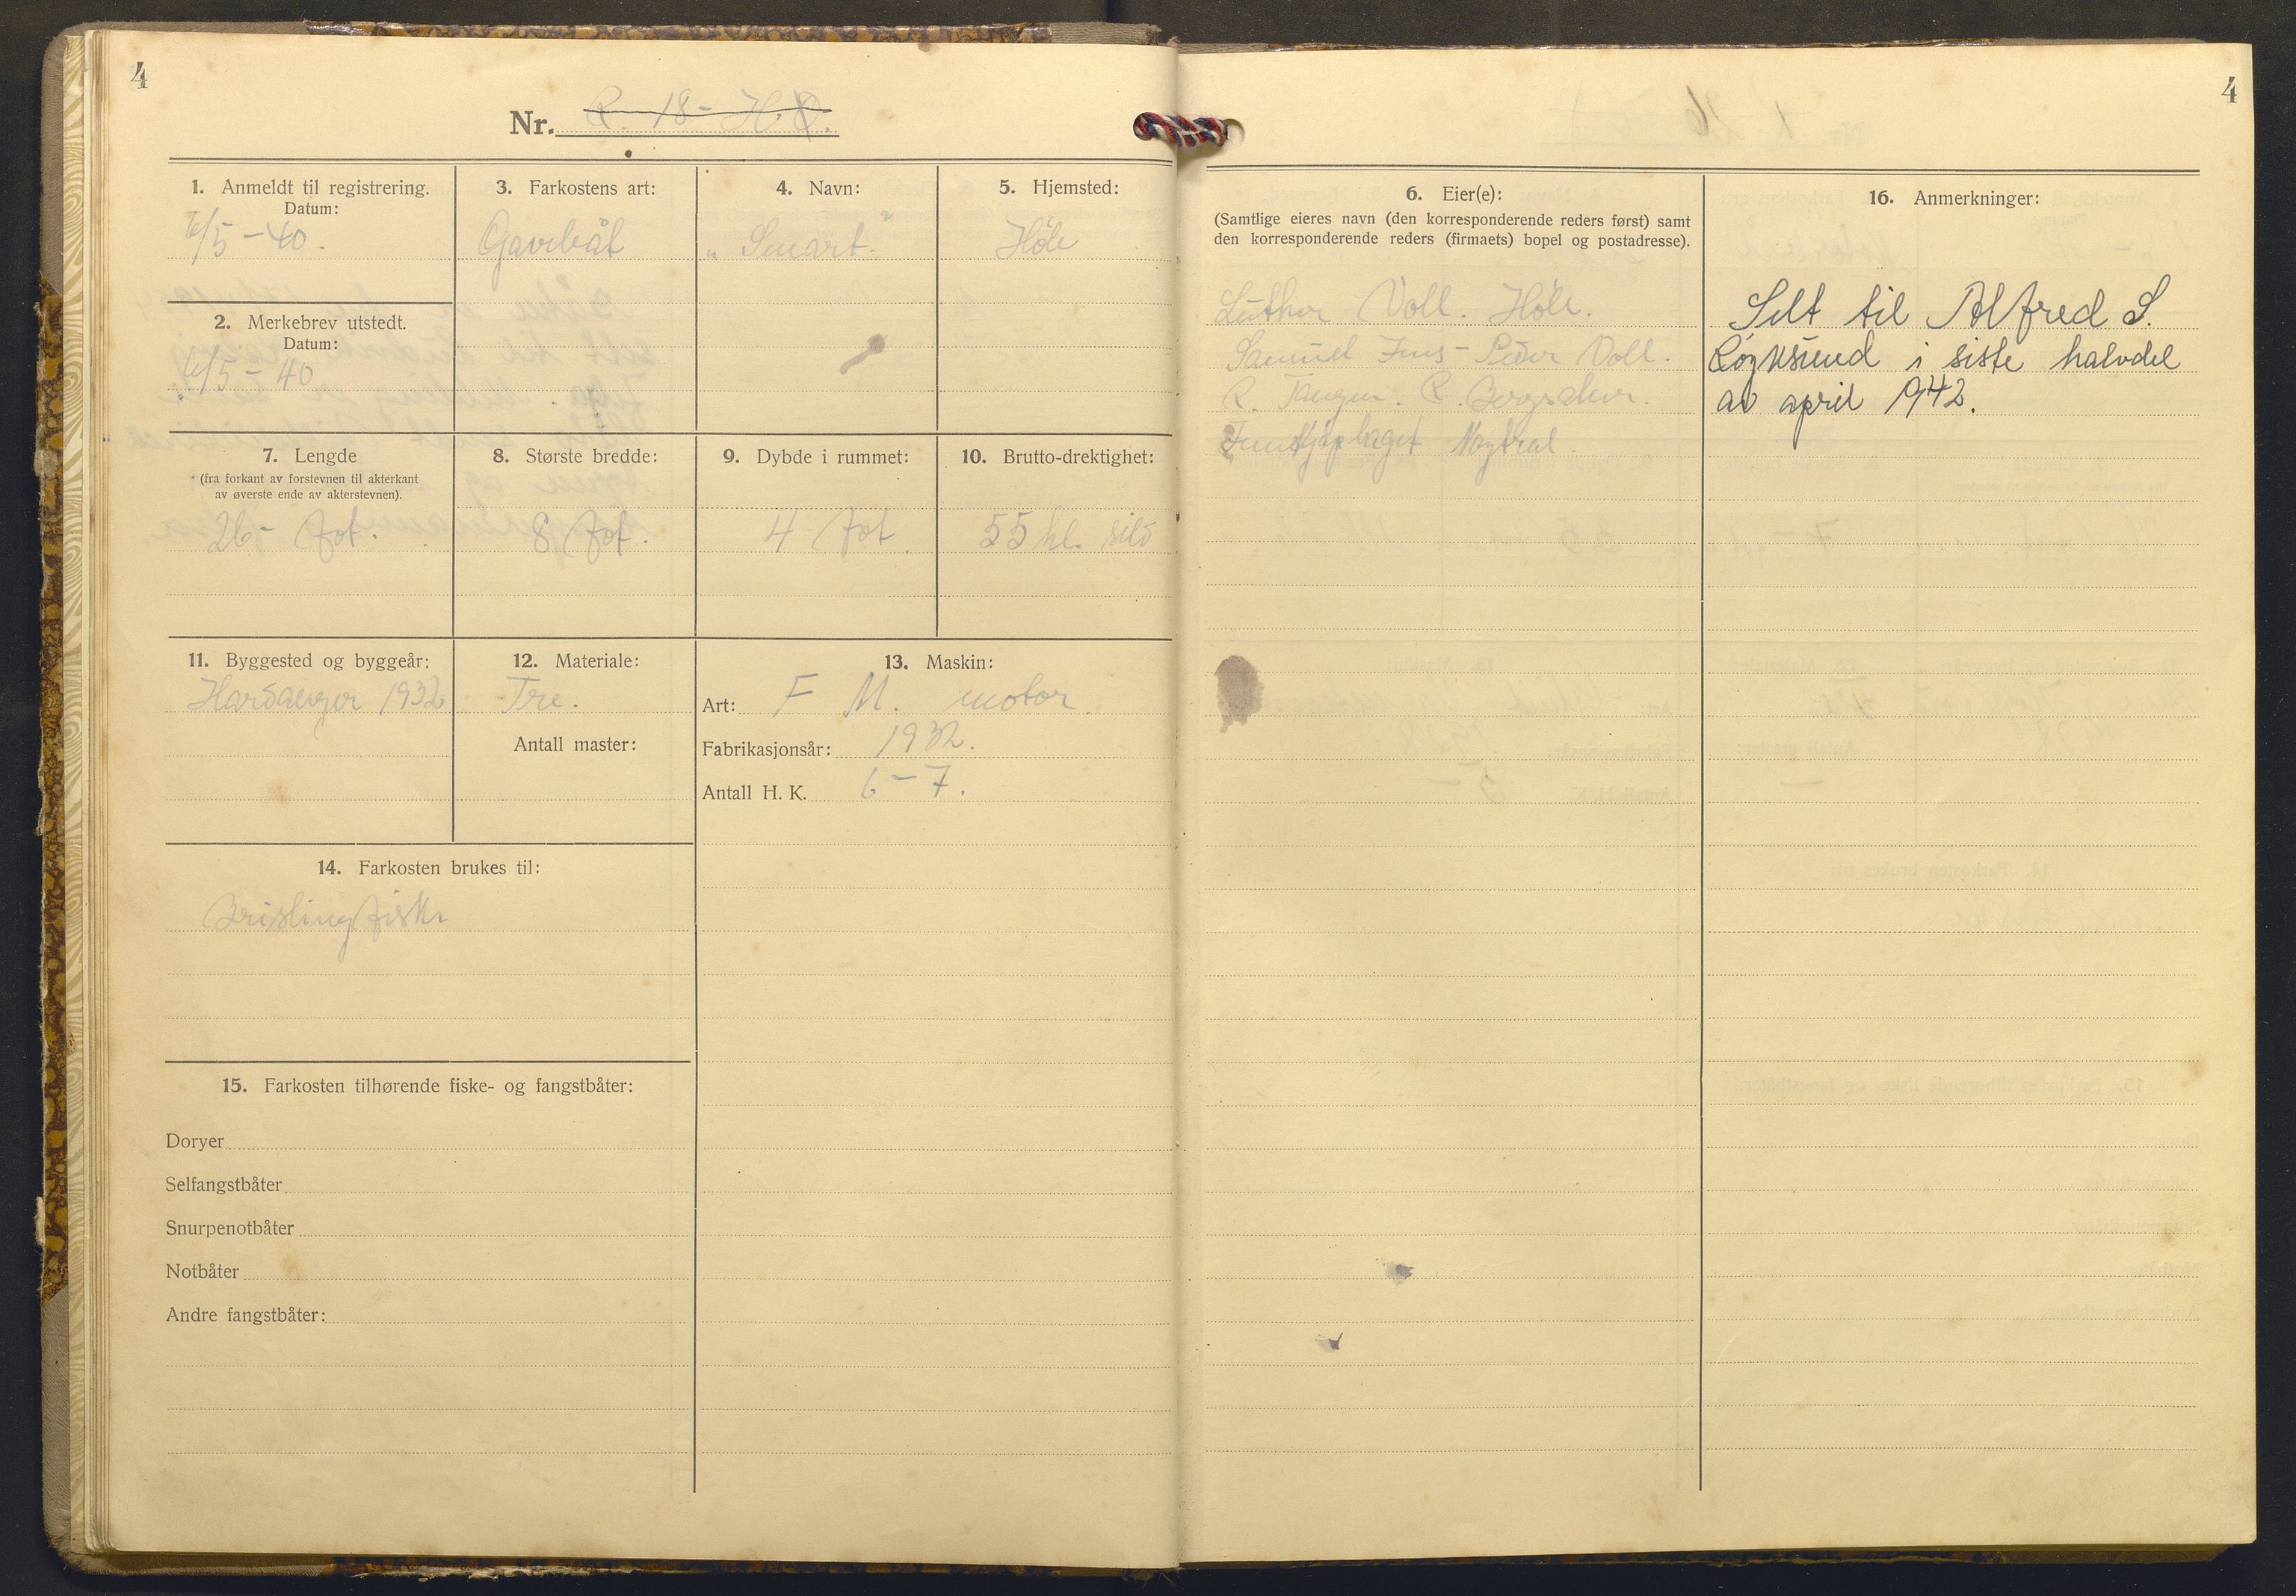 4
Nr. R. 18 - H.
1. Anmeldt til registrering.
Datum:
6/5 - 40.
2. Merkebrev utstedt.
Datum:
6/5 - 40
3. Farkostens art:
Gavlbåt
4. Navn:
„ Smart."
5. Hjemsted:
Høle
7. Lengde
(fra forkant av forstevnen til akterkant
av øverste ende av akterstevnen).
26 - fot.
8. Største bredde:
8 fot.
9. Dybde i rummet:
4 fot.
10. Brutto-drektighet:
55 hl. sild
11. Byggested og byggeår:
Hardanger 1932
12. Materiale:
Tre.
Antall master:
13. Maskin:
Art: F M. motor
Fabrikasjonsår: 1932.
Antall H. K. 6 - 7.
14. Farkosten brukes til:
Brislingfiske
15. Farkosten tilhørende fiske- og fangstbåter:
Doryer
Selfangstbåter
Snurpenotbåter
Notbåter
Andre fangstbåter:
4
6. Eier(e):
(Samtlige eieres navn (den korresponderende reders først) samt
den korresponderende reders (firmaets) bopel og postadresse).
Luther Voll. Høle.
Samuel Jens - Peder Voll.
R. Tangen. R.
Nøytral.
16. Anmerkninger:
Selt til Alfred S.
i siste halvdel
av april 1942.